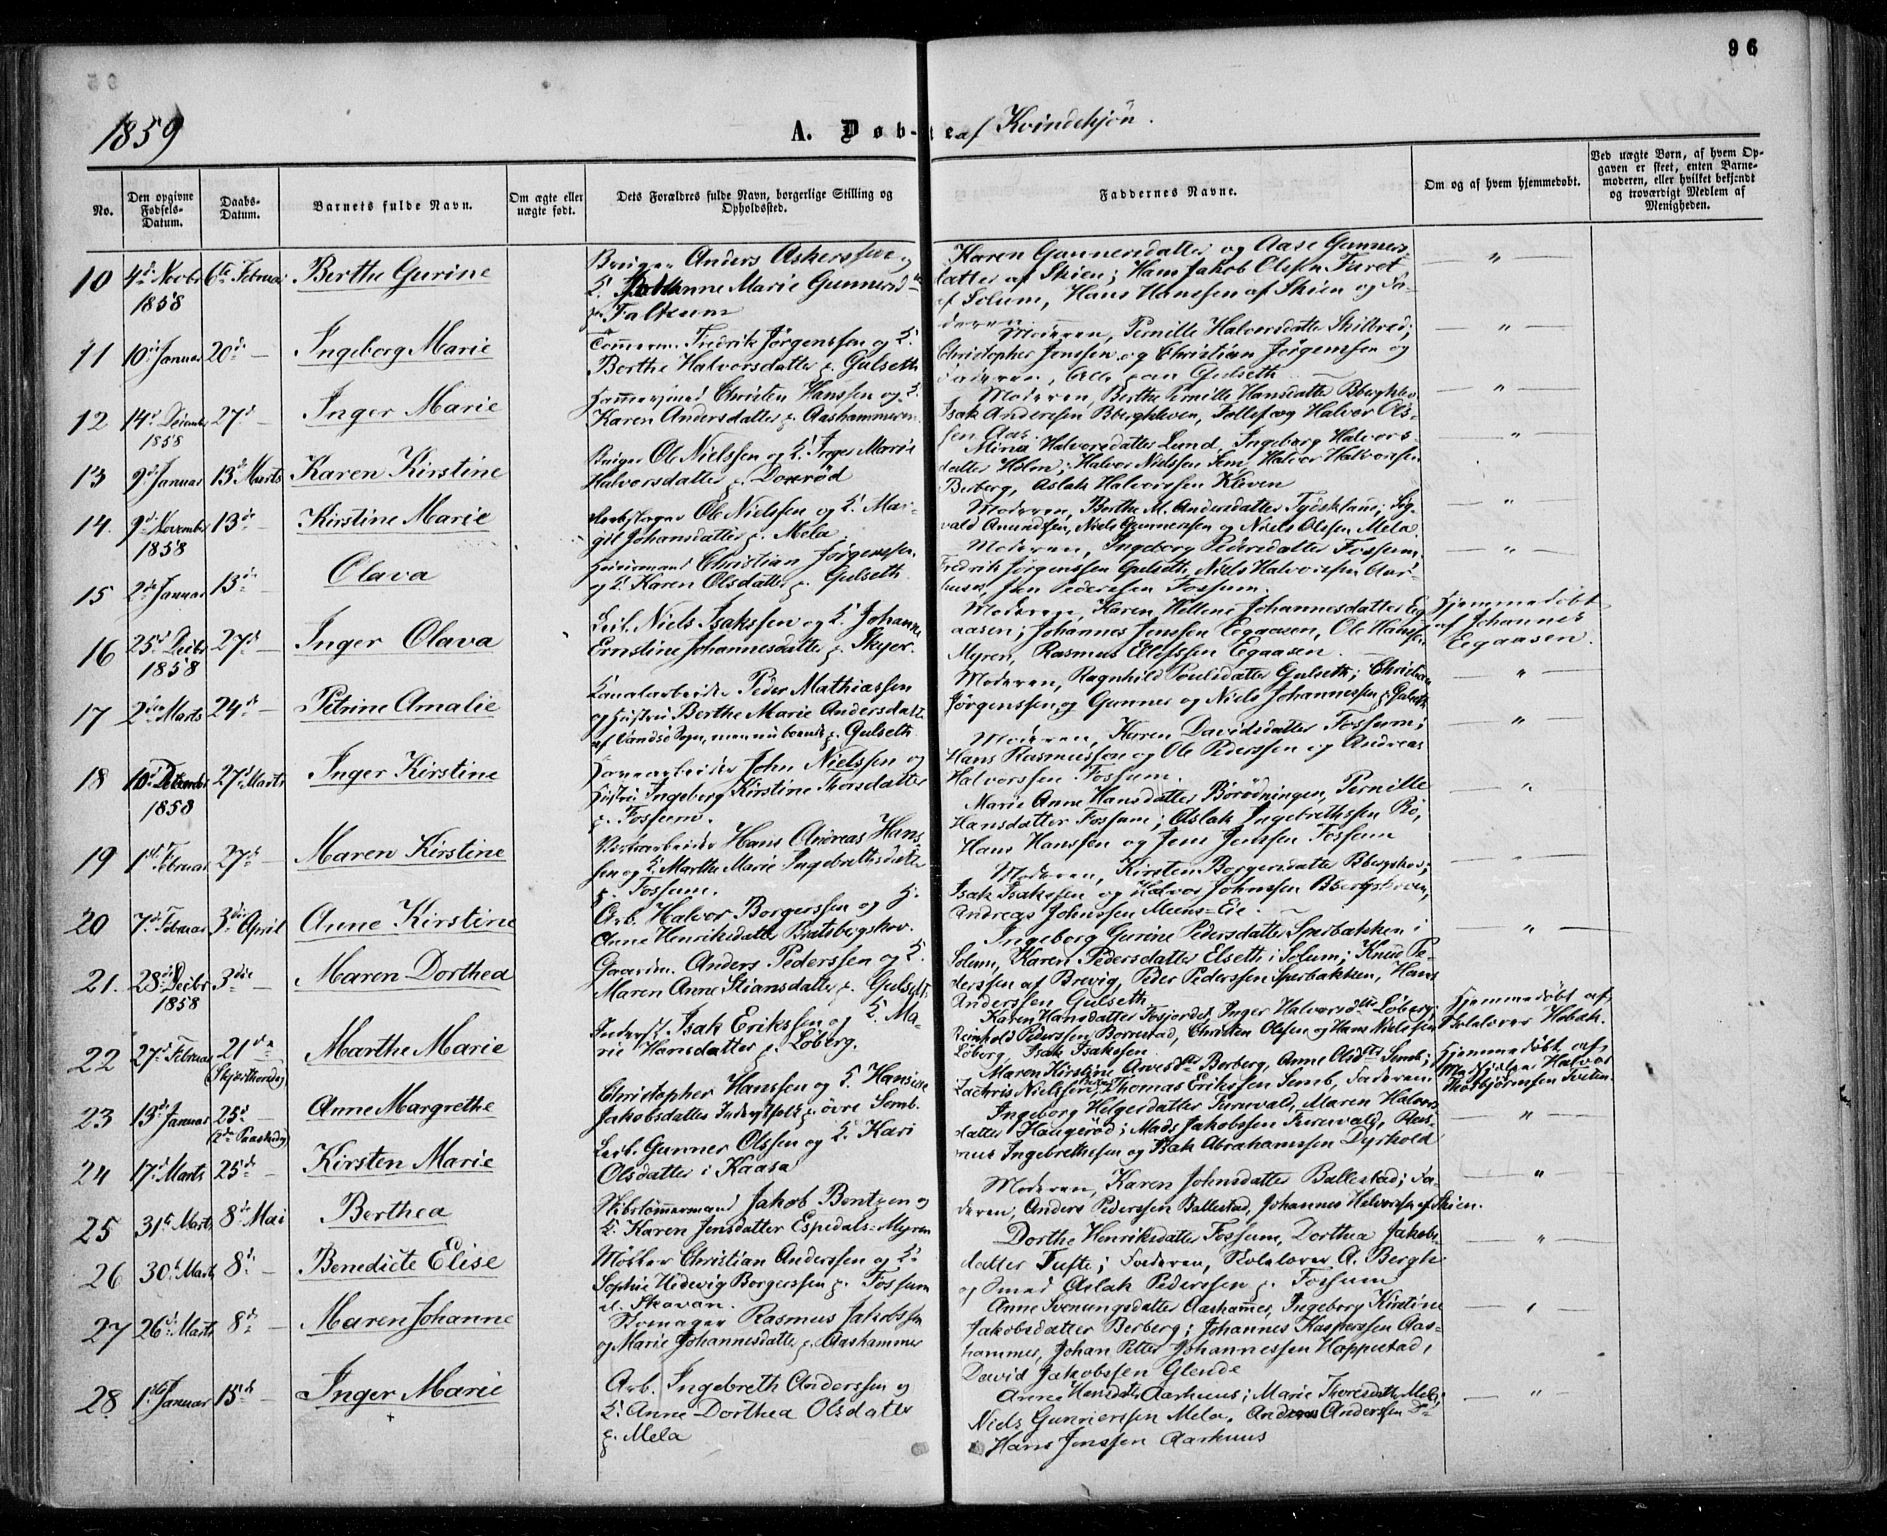 96
1859
A. Døbte af Kvindekjön.
No.
Den opgivne Fødsels-Datum.
Daabs-Datum.
Barnets fulde Navn.
Om ægte eller uægte født.
Dets Forældres fulde Navn, borgerlige Stilling og Opholdssted.
Faddernes Navne.
Om og af hvem hjemmedøbt.
Ved uægte Børn, af hvem Opgaven er skeet, enten Barnemoderen, eller hvilket bekjendt og troværdigt Medlem af Menigheden.
10 4de Novbr 1858 6te Februar Berthe Gurine
Bruger Anders Askerssen og
K. Johanne Marie Gunnersd
p. Falkum
Karen Gunnersdatter og Aase Gunners
datter af Skien; Hans Jakob Olssen Furet
af Solum, Hans Hanssen af Skien og Fa-
deren
11 10de Januar 20de Ingeborg Marie
Tømerm. Fredrik Jörgenssen og K.
Berthe Halvorsdatter p. Gulseth
Moderen, Pernille Halvorsdatter Skilbred;
Christopher Jenssen og Christian Jörgenssen og
Faderen, Alle paa Gulseth
12 14de Decembr 1858 27de Inger Marie
Hammersmed Christen Hanssen og K.
Karen Andersdatter p. Aashammeren
Moderen, Berthe Pernille Hansdatter Bbergklev
Isak Anderssen Bbergkleven, Tollef og Halvor Ols-
sen Aas
13 9de Januar 13de Marts Karen Kirstine
Bruger Ole Nielssen og K. Inger Marie
Halvorsdatter p. Doxrød
Mina Halvorsdatter Lund, Ingeborg Halvors-
datter Holm; Halvor Nielssen Fem, Halvor Halvorssen
Berberg, Aslak Halvorssen Kleven
14. 9de November 1858 13de Kirstine Marie
Ole Nielssen og K. Mar-
git Johansdatter p. Mela
Moderen, Berthe M. Andersdatter Tydskland; Sig-
vald Amundssen, Niels Gunnerssen og Niels Olssen Mela
15 2de Januar 13de Olava
Huusmand Christian Jörgenssen
og K. Karen Olsdatter p. Gulseth
Moderen, Ingeborg Pedersdatter Fossum
Fredrik Jørgenssen Gulseth, Niels Halvorssen Aar-
huus, Jon Pederssen Fossum.
16 25de Decbr 1858 27de Inger Olava
Leil. Niels Isakssen og K. Johanne
Ernstine Johannesdatter p. Skyer.
Moderen, Karen Hellene Johannesdatter Eg-
aasen; Johannes Jenssen Egaasen, Ole Hanssen
Myren, Rasmus Ellefssen Egaasen
Hjemmedöbt
af Johannes
Egaasen
17 2den Marts 24de Petrine Amalie
Kanalarbeider Peder Mathiassen
og Hustru Berthe Marie Andersdatter
af Vandsø Sogn, men nu boende p. Gulseth
Moderen, Ragnhild Poulsdatter Gulseth; Christian
Jörgenssen og Gunner og Niels Johannessen p. Gulseth
18 10de December 1858 27de Marts Inger Kirstine
John Nielssen og
Hustru Ingeborg Kirstine Thorsdatter
p. Fossum.
Moderen, Karen Davidsdatter Fossum;
Hans Rasmussen og Ole Pederssen og Andreas
Halvorssen Fossum.
19 1ste Februar 27de Maren Kirstine
Verksarbeider Hans Andreas Hans-
sen og K. Marthe Marie Ingebrethsdatter
p. Fossum.
Marie Anne Hansdatter Börödningen, Pernille
Hansdatter Fossum; Aslak Ingebrethssen Bø,
Hans Hanssen og Jens Jenssen Fossum
20 7de Februar 3die April Anne Kirstine
Arb. Halvor Borgerssen og H.
Anne Henriksdatter Bratsbergskov.
Moderen, Kirsten Borgersdatter Bbergskov;
Isak Isakssen og Halvor Johnssen Bbergskleven,
Andreas Johnssen Meens-Eie.
21. 28de Decbr 1858 3die Maren Dorthea
Gaardm. Anders Pederssen og K.
Maren Anne Stiansdatter p. Gulseth
Ingeborg Gurine Pedersdatter Sperbakken i
Solum, Karen Pedersdatter Elseth i Solum; Knud Pe-
derssen af Brevig, Peder Pederssen Sperbakken, Hans
Anderssen Gulseth
22 27de Februar 21de (Skjærthorsdag) Marthe Marie
Inderst Isak Erikssen og K. Ma-
rie Hansdatter p. Løberg.
Karen Hansdatter Fosjordet, Inger Halvorsdtr Løberg;
Reinhold Pederssen Borrestad, Christen Olssen og Hans Nielssen
Løberg, Isak Isakssen
Hjemmedøbt af
Skolelærer Hobæk.
23 13de Januar 25de (2den Paaskedag) Anne Margrethe
Christopher Hanssen og K. Hansine
Jakobsdatter Inderstfolk p. øvre Semb.
Maren Kirstine Arvesdtr Berberg, Anne Olsdtr Semb;
Zacharis Nielssen, Thomas Erikssen Semb, Faderen
Hjemmedøbt af
Halvor
Thorbjörnssen Tveten
24 17de Marts 25de Kirsten Marie
Leil. Gunner Olssen og K. Kari
Olsdatter i Kaasa
Ingeborg Helgesdatter Furuvald, Maren Halvors
datter Haugerød; Mads Jakobssen Furuvald, Ras-
mus Ingebrethssen og Isak Abrahamssen Dyrkold
25 31te Marts 8de Mai Berthea
Skibstömmermand Jakob Bentzen og
K. Karen Jensdatter Espedals-Myren
Moderen, Karen Johnsdatter Ballestad; Fa-
deren, Anders Pederssen Ballestad, Johannes Halvorssen af Skien.
26 30te Marts 8de Benedicte Elise
Møller Christian Anderssen og K.
Sophie Hedevig Borgerssen p. Fossum
Skavan.
Dorthe Henriksdatter Fossum, Dorthea Jakobs-
datter Tufte; Faderen, Skolelærer A. Bergh
og Smed Aslak Pederssen p. Fossum
27 26de Marts 8de Maren Johanne
Skomager Rasmus Jakobssen
og Marie Johannesdatter p. Aashammer
Anne Svenungsdatter Aashammer, Ingeborg Kirstine
Jakobsdatter Berberg; Johannes Kasperssen Aas-
hammer, Johan Petter Johannessen Hoppestad,
David Jakobssen Glende
28 1ste Januar 15de Inger Marie
Arb. Ingebreth Anderssen og
K. Anne Dorthea Olsdatter
p. Mela
Anne Hansdtr Aarhuus; Marie Thoresdatter Mela;
Niels Gunnerssen Mela, Anders Anderssen Do
Hans Jenssen Aarhuus